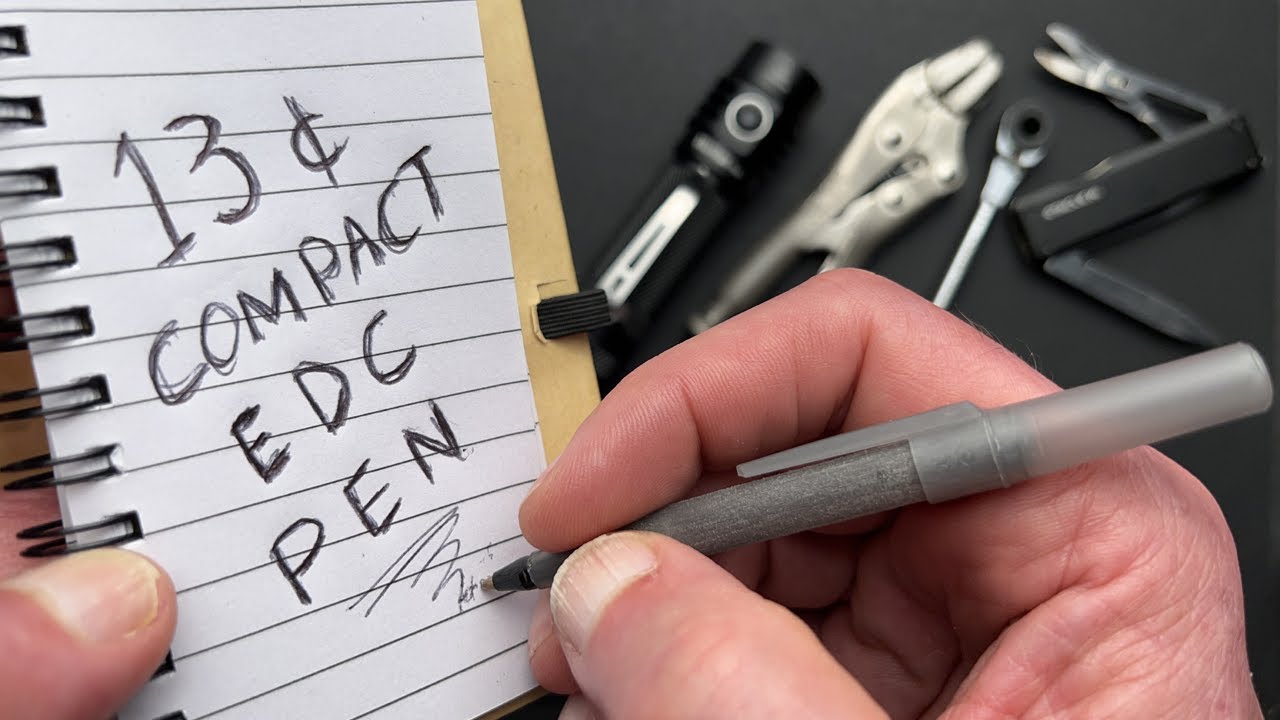 13¢
COMPACT
EDC
PEN